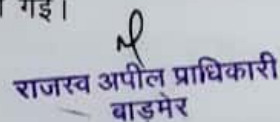 गई।
राजस्व अपील प्राधिकारी
बाड़मेर